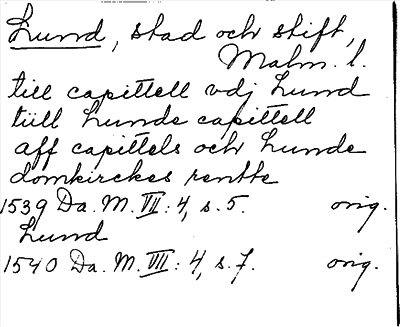 Lund, stad och stift,
Malm. l.
till capittell vdj Lund
tiill Lunde capittell
aff capittels och Lunde
domkirckes rentte
1539 Da. M. VII: 4, s. 5. orig.
Lund
1540 Da. M. VII: 4, s. 7. orig.